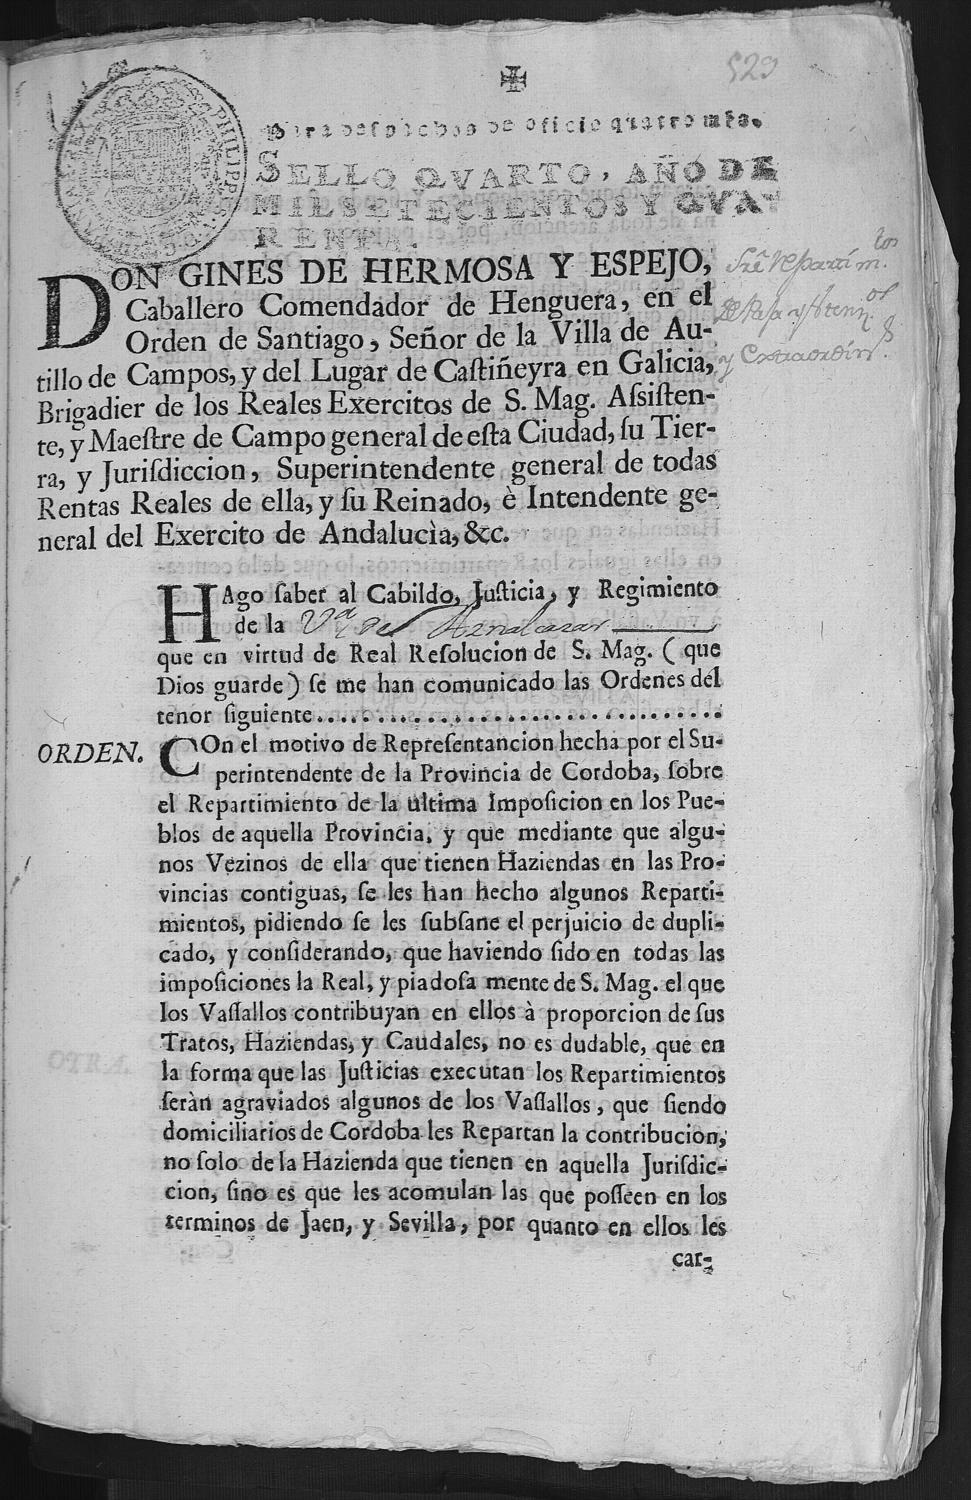 529
✠
Para despachos de oficio quatro mrs.
SELLO QVARTO, AÑO DE
MIL SETECIENTOS Y QVA-
RENTA.
DON GINES DE HERMOSA Y ESPEJO,
Caballero Comendador de Henguera, en el
Orden de Santiago, Señor de la Villa de Au-
tillo de Campos, y del Lugar de Castiñeyra en Galicia,
Brigadier de los Reales Exercitos de S. Mag. Assisten-
te, y Maestre de Campo general de esta Ciudad, su Tier-
ra, y Jurisdiccion, Superintendente general de todas
Rentas Reales de ella, y su Reinado, è Intendente ge-
neral del Exercito de Andalucìa, &c.
HAgo saber al Cabildo, Justicia, y Regimiento
de la Vª de Aznalcazar
que en virtud de Real Resolucion de S. Mag. ( que
Dios guarde ) se me han comunicado las Ordenes del
tenor siguiente.......................................
ORDEN. COn el motivo de Representancion hecha por el Su-
perintendente de la Provincia de Cordoba, sobre
el Repartimiento de la ultima Imposicion en los Pue-
blos de aquella Provincia, y que mediante que algu-
nos Vezinos de ella que tienen Haziendas en las Pro-
vincias contiguas, se les han hecho algunos Reparti-
mientos, pidiendo se les subsane el perjuicio de dupli-
cado, y considerando, que haviendo sido en todas las
imposiciones la Real, y piadosa mente de S. Mag. el que
los Vassallos contribuyan en ellos à proporcion de sus
Tratos, Haziendas, y Caudales, no es dudable, que en
la forma que las Justicias executan los Repartimientos
seràn agraviados algunos de los Vassallos, que siendo
domiciliarios de Cordoba les Repartan la contribucion,
no solo de la Hazienda que tienen en aquella Jurisdic-
cion, sino es que les acomulan las que posseen en los
terminos de Jaen, y Sevilla, por quanto en ellos les
car-